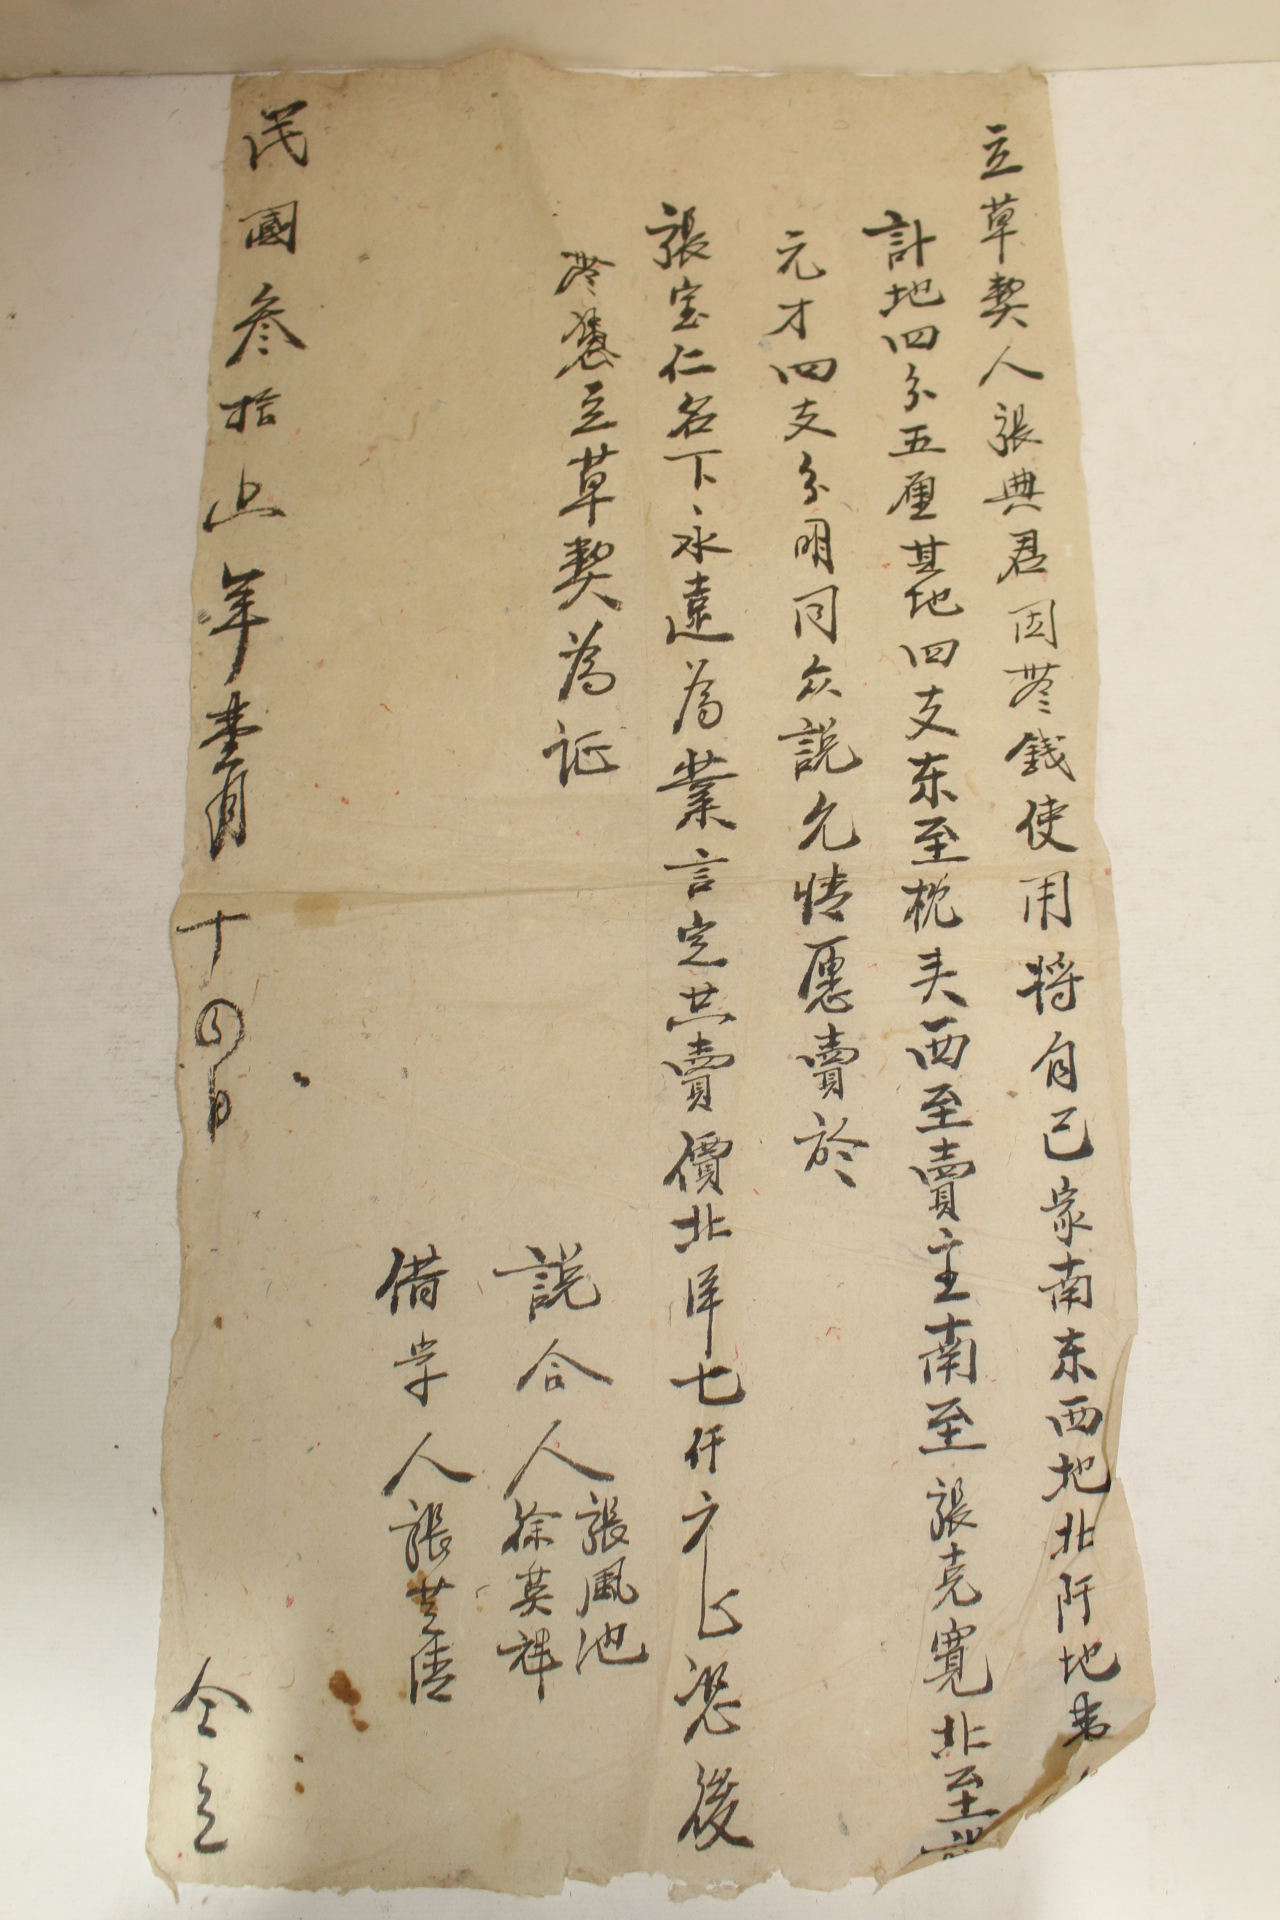 立草契人張典君因無錢使用將自己家南东西地北阡地
計地四分五厘其地四支东至枕夫西至賣主南至張克寬北至
元才四支分明同众說允情愿賣於
張宝仁名下永遠為業言定共賣價北洋七仟元正恐後
無憑立草契為証
說合人 張風池 徐英祥
借字人 張芝
民國叁拾 年壹月十 日 仝立